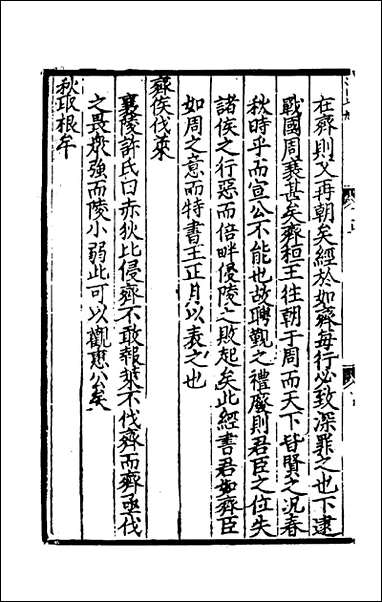 在齊則又再朝矣經於如齊每行必致深罪之也下逮
戰國周衰甚矣齊桓王往朝于周而天下皆賢之況春
秋時乎而宣公不能也故聘覲之禮廢則君臣之位失
諸侯之行惡而倍畔侵陵之敗起矣此經書君如齊臣
如周之意而特書王正月以表之也
齊侯伐萊
襄陵許氏曰赤狄比侵齊不敢報萊不伐齊而齊亟伐
之畏衆強而陵小弱此可以觀惠公矣
秋取根牟